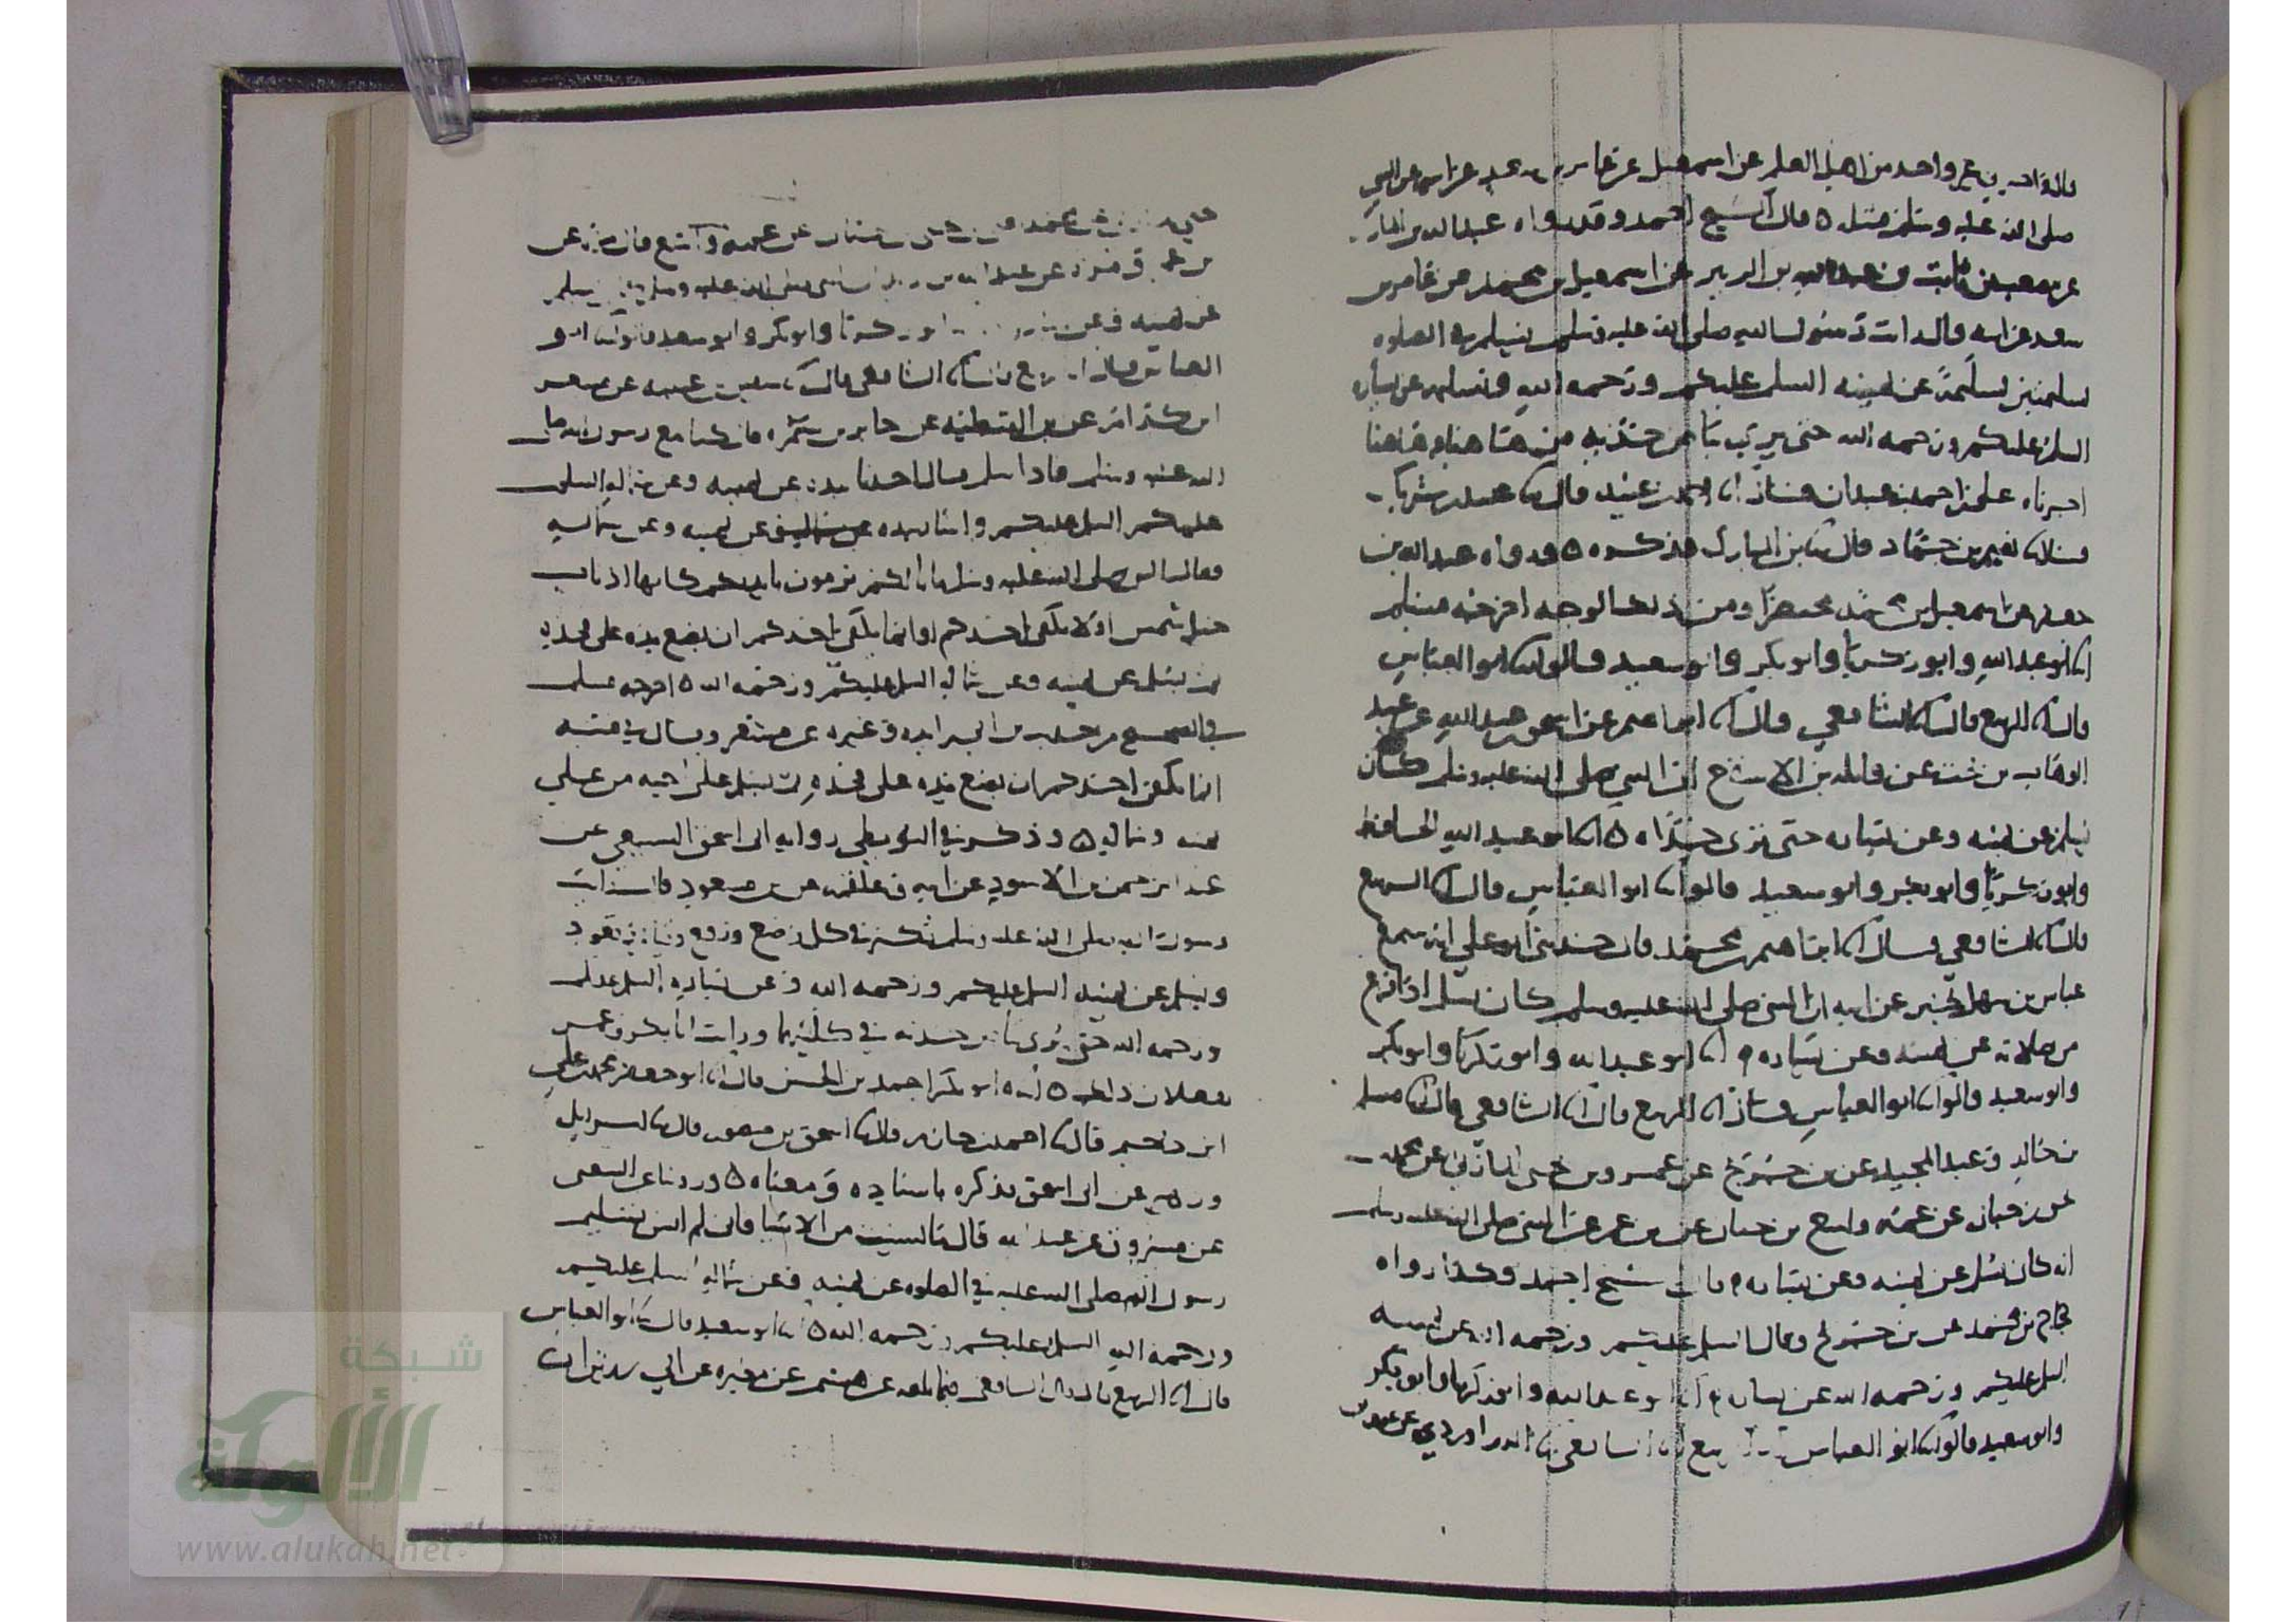 غير واحد من اهل العلم عن اسمعيل عن عامر بن سعد عن ابيه عن النبي
صلى الله عليه وسلم مثله ٥ قال الشيخ احمد وقد رواه عبد الله بن المبارك
عن مصعب بن ثابت بن عبد الله بن الزبير عن اسمعيل بن محمد عن عامر بن
سعد عن ابيه قال رايت رسول الله صلى الله عليه وسلم يسلم في الصلوه
تسليمتين تسليمة عن يمينه السلم عليكم ورحمه الله وتسليمه عن يساره
السلم عليكم ورحمه الله حتى يرى بياض خديه من هاهنا وهاهنا
اخبرناه علي بن احمد بن عبدان قال انا احمد بن عبيد قال عبيد بن شريك
قال نعيم بن حماد قال بن المبارك فذكره ٥ ورواه عبد الله بن
جعفر عن اسمعيل بن محمد مختصرا ومن ذلك الوجه اخرجه مسلم
انا ابو عبد الله وابو زكريا وابو بكر وابو سعيد قالوا انا ابو العباس
قال انا الربيع قال انا الشافعي قال انا ابراهيم عن اسحق بن عبد الله عن عبد
الوهاب بن بخت عن واثله بن الاسقع ان النبي صلى الله عليه وسلم كان
يسلم عن يمينه وعن يساره حتى يرى خداه ٥ انا ابو عبد الله الحافظ
وابو زكريا وابو بكر وابو سعيد قالوا انا ابو العباس قال انا الربيع
قال انا الشافعي قال انا ابراهيم بن محمد قال حدثني ابو علي انه سمع
عباس بن سهل يخبر عن ابيه ان النبي صلى الله عليه وسلم كان يسلم اذا فرغ
من صلاته عن يمينه وعن يساره ٥ انا ابو عبد الله وابو زكريا وابو بكر
وابو سعيد قالوا انا ابو العباس قال انا الربيع قال انا الشافعي قال انا مسلم
بن خالد وعبد المجيد عن بن جريج عن عمرو بن يحيى المازني عن محمد
بن حبان عن عمه واسع بن حبان عن بن عمر عن النبي صلى الله عليه وسلم
انه كان يسلم عن يمينه وعن يساره ٥ قال الشيخ احمد وكذا رواه
حجاج بن محمد عن بن جريج وقال السلم عليكم ورحمه الله عن يمينه
السلم عليكم ورحمه الله عن يساره ٥ انا ابو عبد الله وابو زكريا وابو بكر
وابو سعيد قالوا انا ابو العباس انا الربيع انا الشافعي انا الدراوردي عن عمرو بن
عن عمه واسع قال مره عن
بن عمر ومره عن عبد الله بن زيد ان النبي صلى الله عليه وسلم كان يسلم
عن يمينه وعن ابو زكريا وابو بكر وابو سعيد قالوا انا ابو
العباس قال انا الربيع قال انا الشافعي قال انا سفين بن عيينه عن مسعر
ابن كدام عن بن القبطيه عن جابر بن سمره قال كنا مع رسول الله صلى
الله عليه وسلم فاذا سلم قال احدنا بيده عن يمينه وعن شماله السلم
عليكم السلم عليكم واشار بيده عن يمينه وعن شماله
فقال النبي صلى الله عليه وسلم ما بالكم ترمون بايديكم كانها اذناب
خيل شمس اولا يكفي احدكم او انما يكفي احدكم ان يضع يده على فخذه
ثم يسلم عن يمينه وعن شماله السلم عليكم ورحمه الله ٥ اخرجه مسلم
في الصحيح من حديث بن ابي زايده وغيره عن مسعر وقال في متنه
انما يكفي احدكم ان يضع يده على فخذه ثم يسلم على اخيه من على
يمينه وشماله ٥ وذكر في البويطي روايه ابي اسحق السبيعي عن
عبد الرحمن بن الاسود عن ابيه وعلقمه عن بن مسعود قال رايت
رسول الله صلى الله عليه وسلم يكبر في كل وضع ورفع وقيام وقعود
ويسلم عن يمينه السلم عليكم ورحمه الله وعن يساره السلم عليكم
ورحمه الله حتى يرى بياض خديه في كلتيهما ورايت ابا بكر وعمر
يفعلان ذلك ٥ ابو بكر احمد بن الحسن قال انا ابو جعفر محمد بن علي
ابن دحيم قال احمد بن حازم قال اسحق بن منصور قال اسرايل
وزهير عن ابي اسحق فذكره باسناده ومعناه ٥ وروينا عن الشعبي
عن مسروق عن عبد الله قال ما نسيت من الاشيا فاني لم انس تسليم
رسول الله صلى الله عليه في الصلوه عن يمينه وعن شماله السلم عليكم
ورحمه الله السلم عليكم ورحمه الله ٥ انا ابو سعيد قال انا ابو العباس
قال انا الربيع قال قال الشافعي فيما بلغه عن هشيم عن مغيره عن ابي رزين ان
شبكة
الألوكة
www.alukah.net